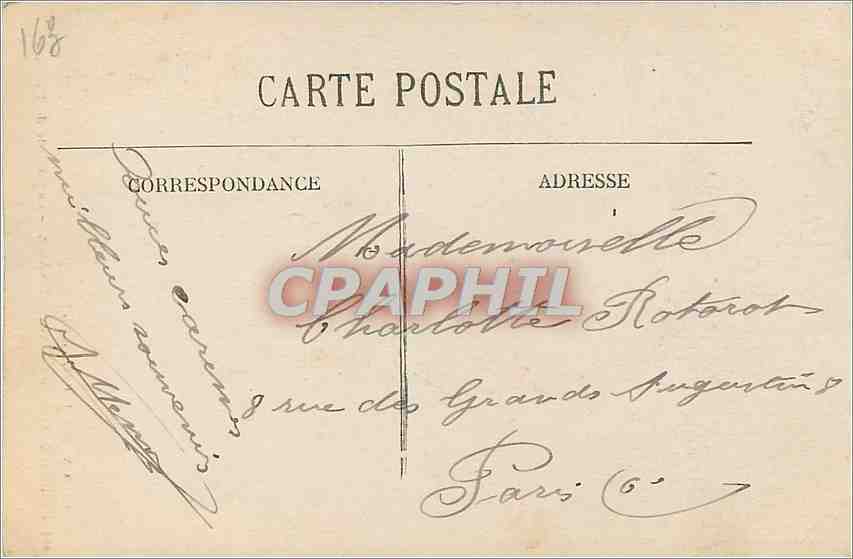 168
CARTE POSTALE
CORRESPONDANCE
ADRESSE
Douces caresses
meilleurs souvenirs
Mademoiselle
Charlotte Rotorot
8 rue des Grands Augustins 8
Paris 6e
CPAPHIL